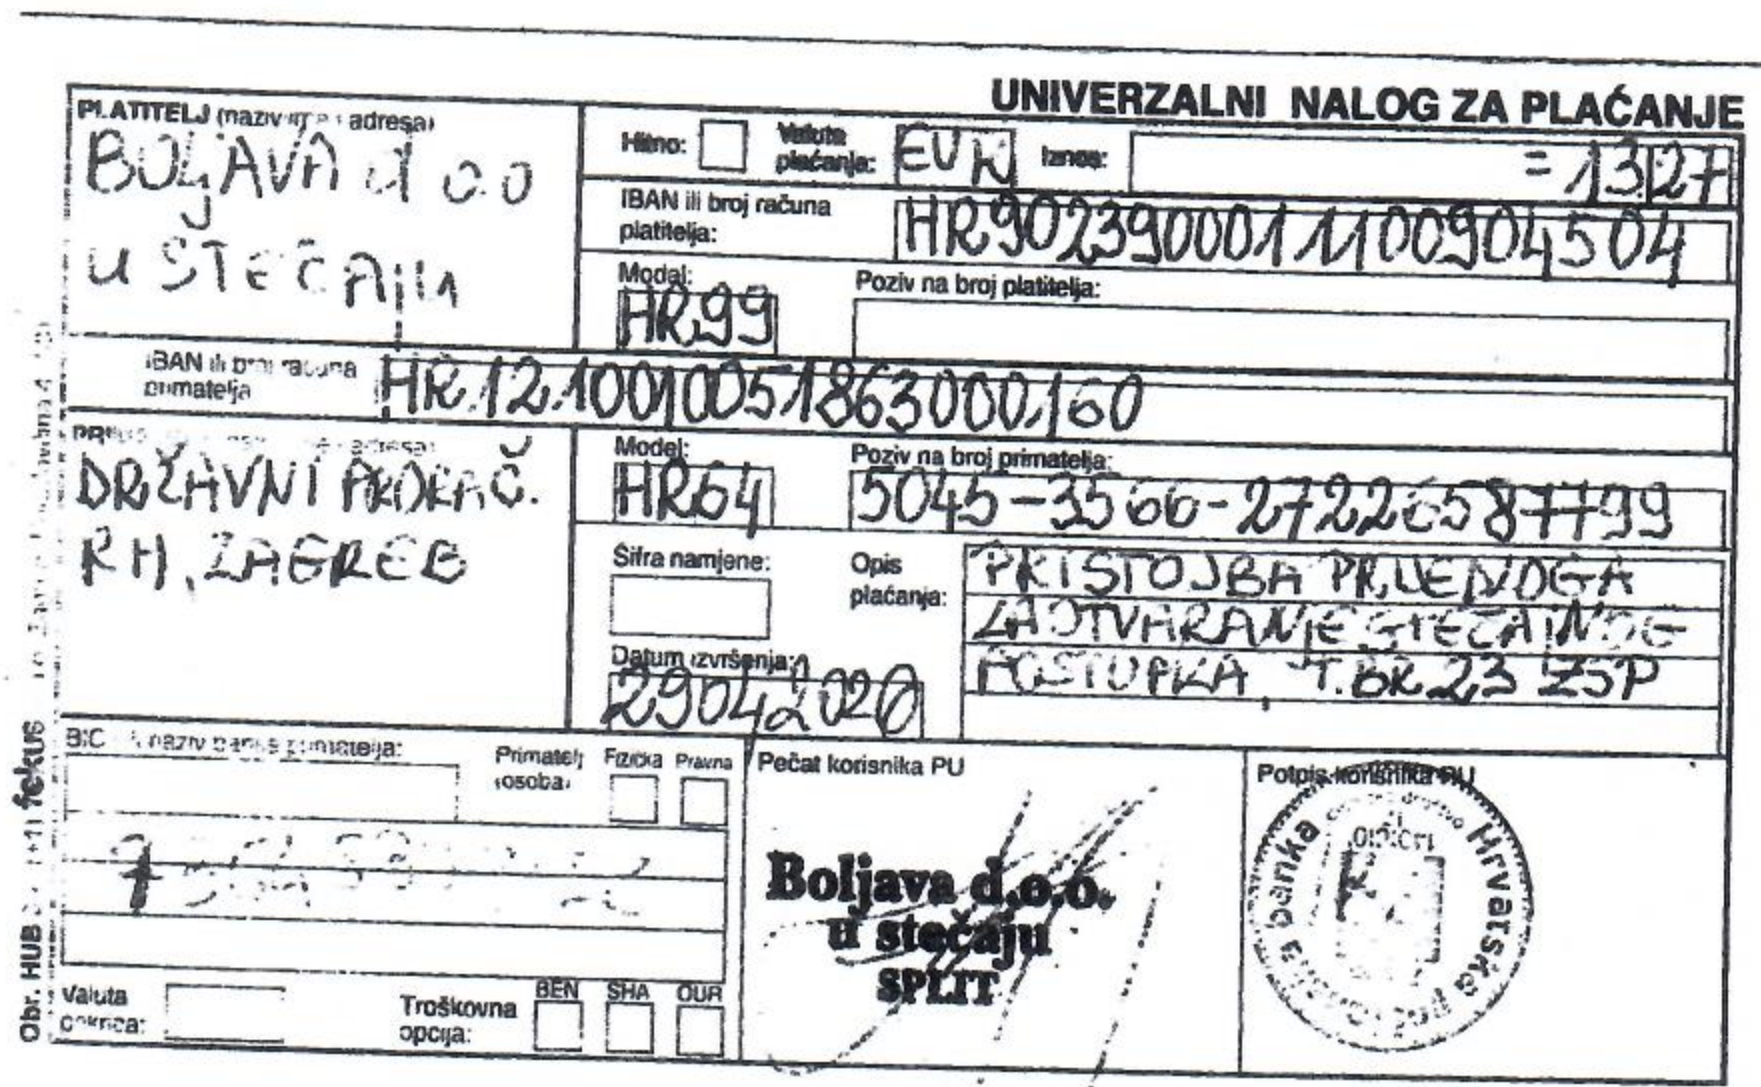 UNIVERZALNI NALOG ZA PLAĆANJE
PLATITELJ (naziv adresa)
BOLJAVA d o.o
u STEČAJU
Hitno:
Valuta plaćanja:
EUR
Iznos:
=13,27
IBAN ili broj računa platitelja:
HR9023900011100904504
Model:
HR99
Poziv na broj platitelja:
IBAN ili broj računa primatelja
HR1210010051863000160
adresa)
DRŽAVNI PRORAČ.
RH, ZAGREB
Model:
HR64
Poziv na broj primatelja:
5045-3566-27226587799
Šifra namjene:
Opis plaćanja:
PRISTOJBA PRIJEDLOGA
ZA OTVARANJE STEČAJNOG
POSTUPKA, T.BR.23 ZSP
Datum izvršenja:
29042020
BIC naziv banke primatelja:
Primatelj (osoba)
Fizička
Pravna
Pečat korisnika PU
Boljava d.o.o.
u stečaju
SPLIT
Potpis korisnika PU
Hrvatska poštanska banka
Valuta pokrića:
Troškovna opcija:
BEN
SHA
OUR
Obr. HUB 3 fokus